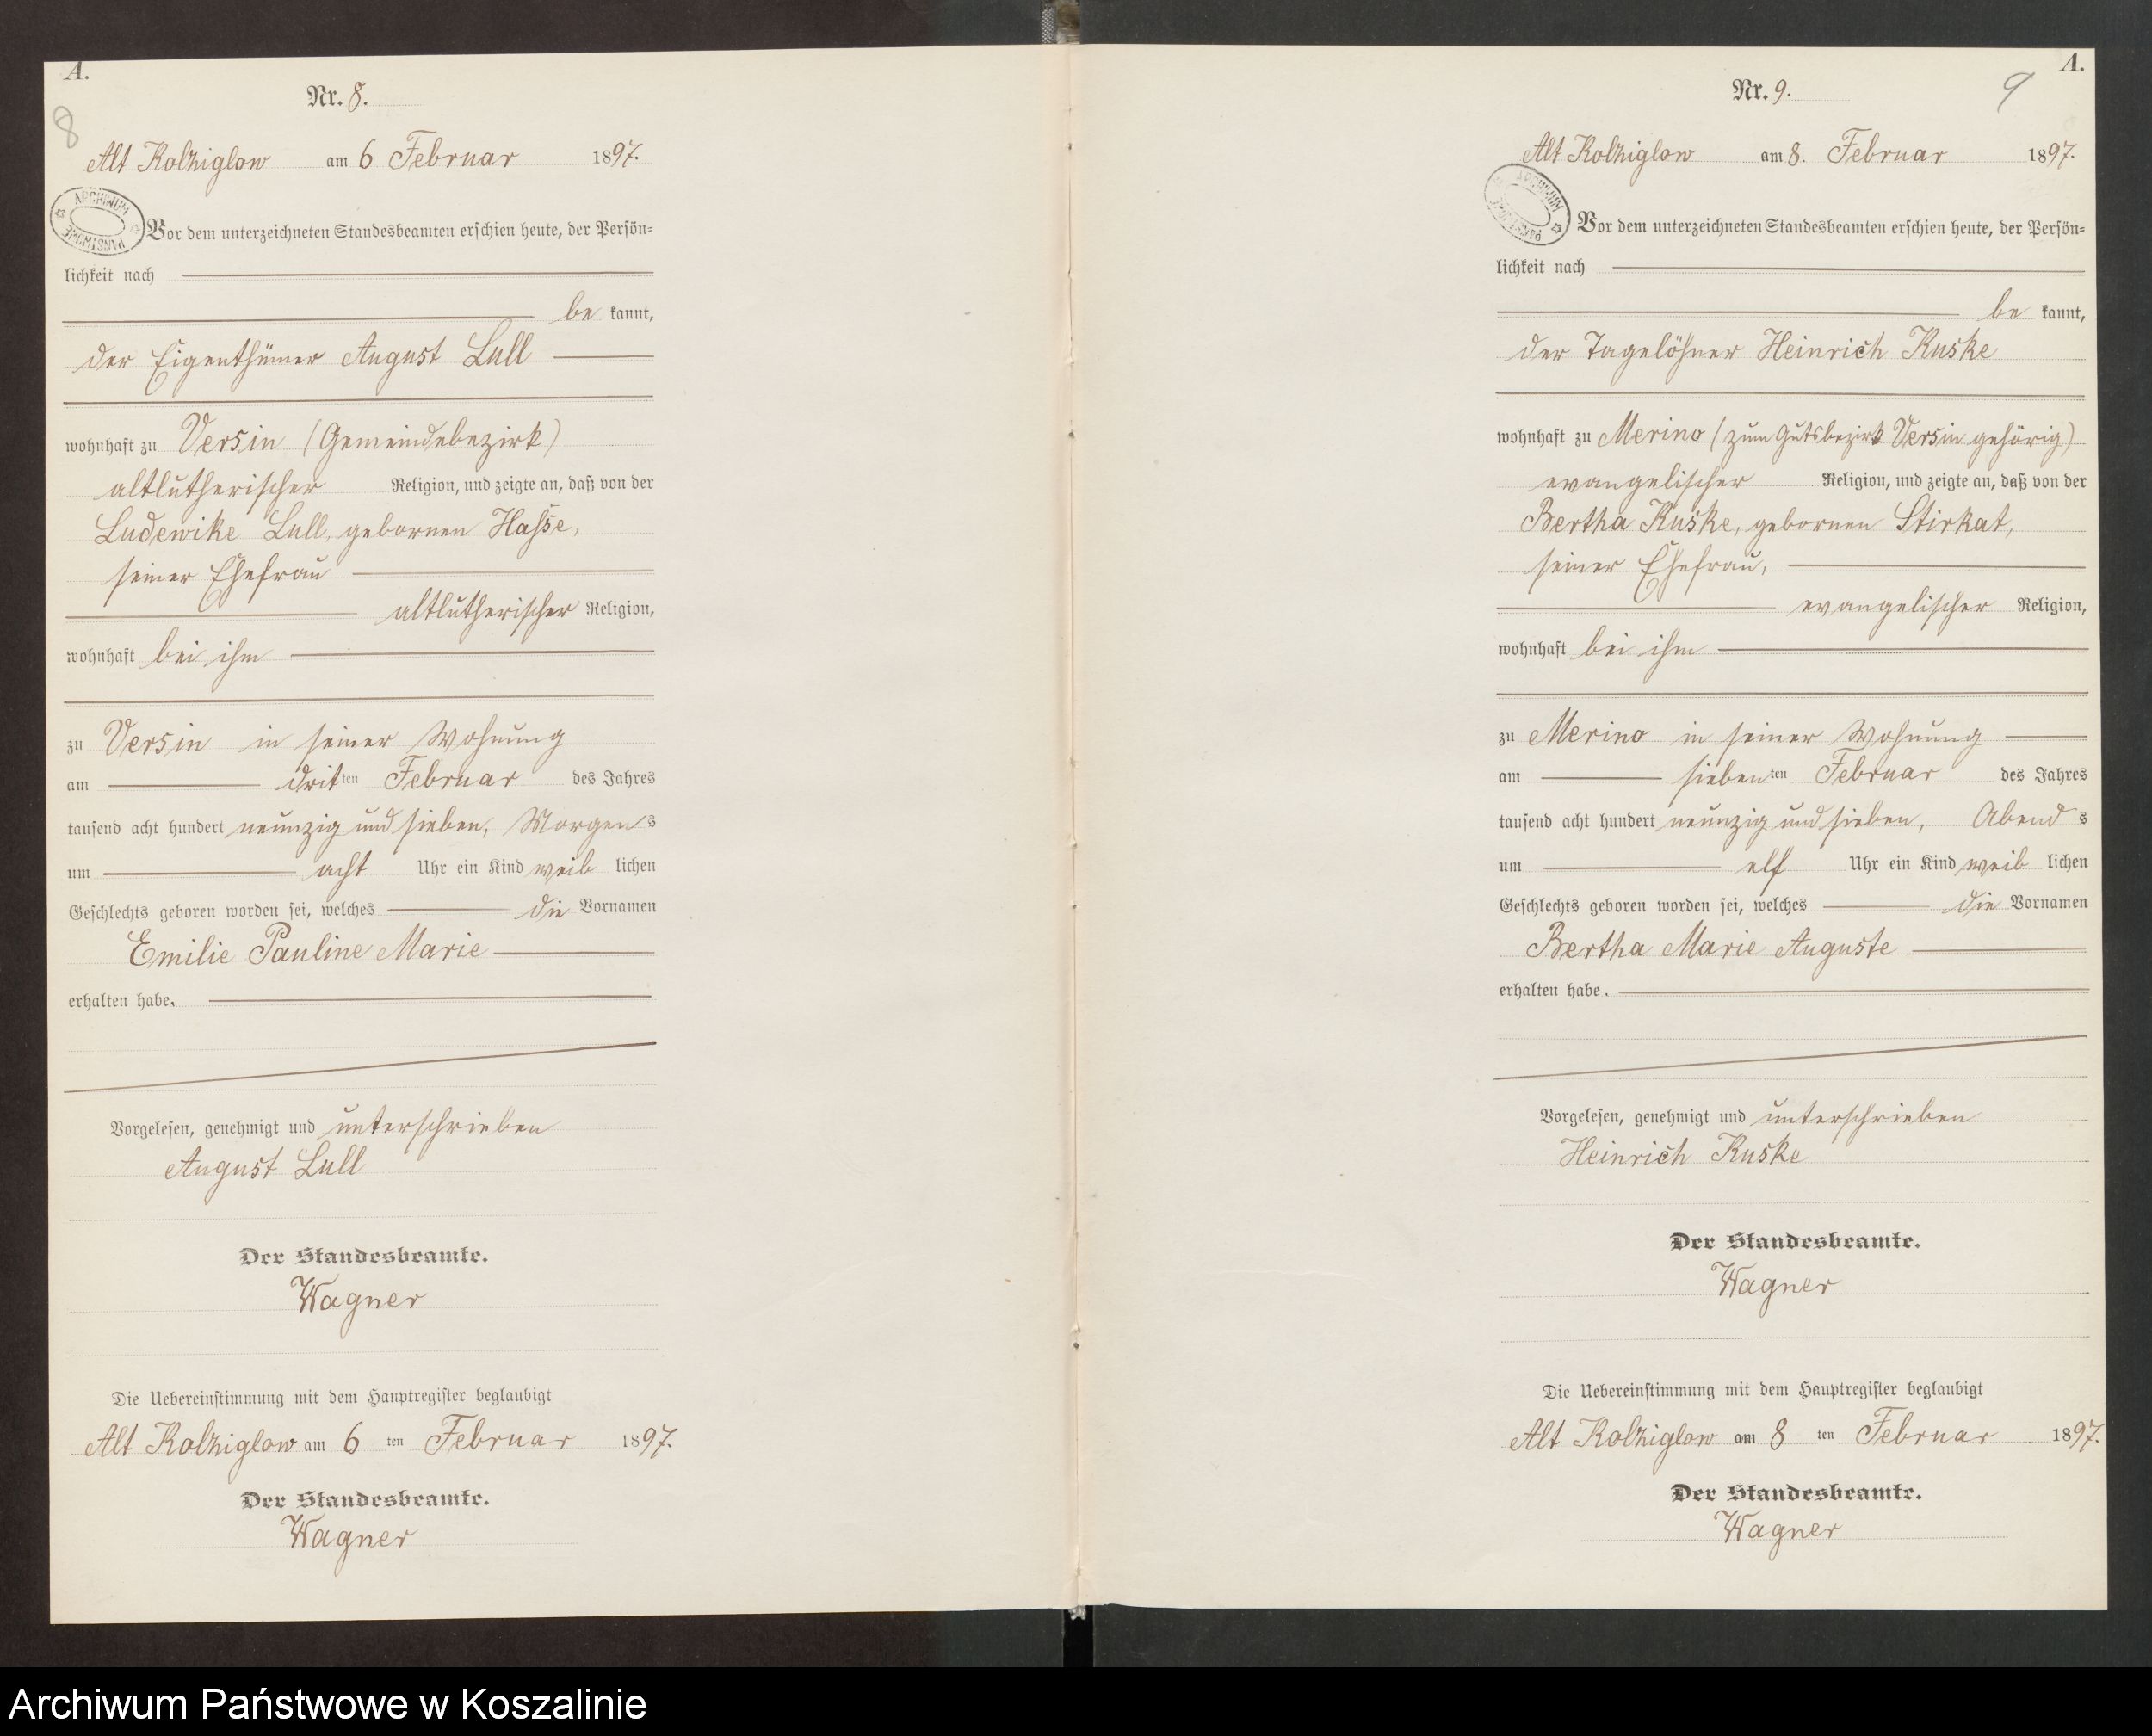 A.
Nr. 8.
8
Alt Kolziglow am 6 Februar 1897.
ARCHIWUM PAŃSTWOWE
Vor dem unterzeichneten Standesbeamten erschien heute, der Persön=
lichkeit nach
be kannt,
der Eigenthümer August Lull
wohnhaft zu Versin (Gemeindebezirk)
altlutherischer Religion, und zeigte an, daß von der
Ludewike Lull, gebornen Hasse,
seiner Ehefrau
altlutherischer Religion,
wohnhaft bei ihm
zu Versin in seiner Wohnung
am dritten Februar des Jahres
tausend acht hundert neunzig und sieben, Morgens
um acht Uhr ein Kind weiblichen
Geschlechts geboren worden sei, welches die Vornamen
Emilie Pauline Marie
erhalten habe.
Vorgelesen, genehmigt und unterschrieben
August Lull
Der Standesbeamte.
Wagner
Die Uebereinstimmung mit dem Hauptregister beglaubigt
Alt Kolziglow am 6 ten Februar 1897.
Der Standesbeamte.
Wagner
A.
Nr. 9.
9
Alt Kolziglow am 8. Februar 1897.
ARCHIWUM
Vor dem unterzeichneten Standesbeamten erschien heute, der Persön=
lichkeit nach
be kannt,
der Tagelöhner Heinrich Kuske
wohnhaft zu Merino (zum Gutsbezirk Versin gehörig)
evangelischer Religion, und zeigte an, daß von der
Bertha Kuske, gebornen Stirkat,
seiner Ehefrau,
evangelischer Religion,
wohnhaft bei ihm
zu Merino in seiner Wohnung
am siebenten Februar des Jahres
tausend acht hundert neunzig und sieben, Abends
um elf Uhr ein Kind weiblichen
Geschlechts geboren worden sei, welches die Vornamen
Bertha Marie Auguste
erhalten habe.
Vorgelesen, genehmigt und unterschrieben
Heinrich Kuske
Der Standesbeamte.
Wagner
Die Uebereinstimmung mit dem Hauptregister beglaubigt
Alt Kolziglow am 8 ten Februar 1897.
Der Standesbeamte.
Wagner
Archiwum Państwowe w Koszalinie